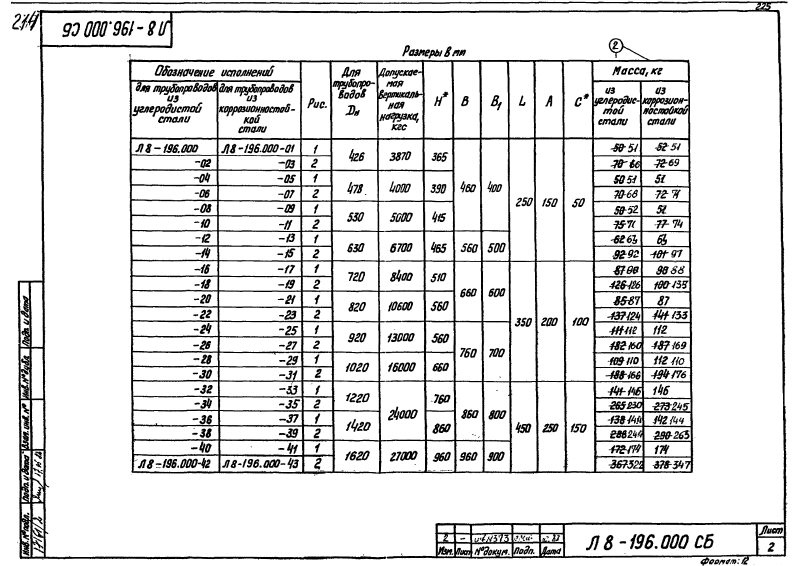 225
214
Л 8 - 196.000 СБ
Размеры в мм
2
Обозначение исполнений
для трубопроводов из углеродистой стали
для трубопроводов из коррозионностойкой стали
Рис.
Для трубопроводов Dн
Допускаемая вертикальная нагрузка, кгс
H* B B1 L A C*
Масса, кг
из углеродистой стали
из коррозионностойкой стали
Л 8 - 196.000 Л 8 - 196.000 - 01 1 426 3870 365 460 400 250 150 50 50 51 52 51
-02 -03 2 70 68 72 69
-04 -05 1 478 4000 390 50 51 51
-06 -07 2 70 68 72 71
-08 -09 1 530 5600 415 50 52 52
-10 -11 2 75 71 77 74
-12 -13 1 630 6700 465 560 500 62 63 63
-14 -15 2 92 92 101 97
-16 -17 1 720 8400 510 660 600 350 200 100 87 88 90 88
-18 -19 2 126 126 100 135
-20 -21 1 820 10600 560 85 87 87
-22 -23 2 137 124 141 133
-24 -25 1 920 13000 560 760 700 111 112 112
-26 -27 2 182 160 187 169
-28 -29 1 1020 16000 660 109 110 112 110
-30 -31 2 188 166 194 176
-32 -33 1 1220 24000 760 860 800 450 250 150 141 146 146
-34 -35 2 265 230 273 245
-36 -37 1 1420 860 138 144 142 144
-38 -39 2 288 244 290 263
-40 -41 1 1620 27000 960 960 900 172 174 174
Л 8 - 196.000 - 42 Л 8 - 196.000 - 43 2 367 322 378 347
Инв. № подл. Подп. и дата Взам. инв. № Инв. № дубл. Подп. и дата
2 -
Изм. Лист № докум. Подп. Дата
Л 8 - 196.000 СБ
Лист
2
Формат: 12